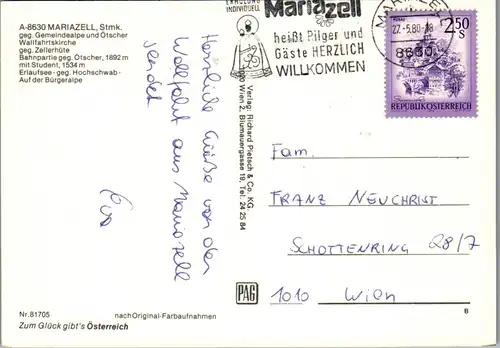 A-8630 MARIAZELL, Stmk.
geg. Gemeindealpe und Ötscher
Wallfahrtskirche
geg. Zellerhüte
Bahnpartie geg. Ötscher, 1892 m
mit Student, 1534 m
Erlaufsee - geg. Hochschwab -
Auf der Bürgeralpe
Herzliche Grüße von der
Wallfahrt aus Mariazell
sendet
Eva
Nr. 81705
nach Original-Farbaufnahmen
Zum Glück gibt's Österreich
Verlag: Richard Pietsch & Co. KG
1200 Wien 2, Blumauergasse 19, Tel. 24 25 84
PAG
ERHOLUNG
INDIVIDUELL
Mariazell
heißt Pilger und
Gäste HERZLICH
WILLKOMMEN
MARIAZELL
27.-5.80.-18
8630
2.50
S
REPUBLIK ÖSTERREICH
Fam.
FRANZ NEUCHRIST
SCHOTTENRING 28/7
1010 Wien
B